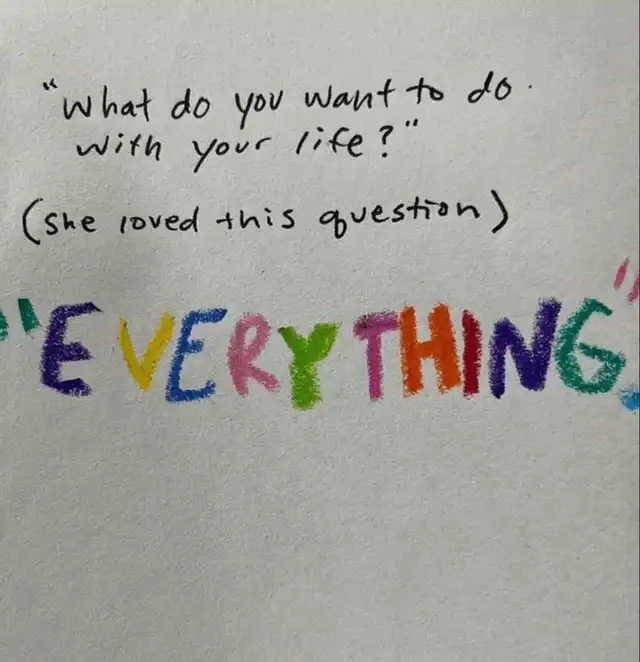 "What do you want to do
with your life?"
(she loved this question)
"EVERYTHING."